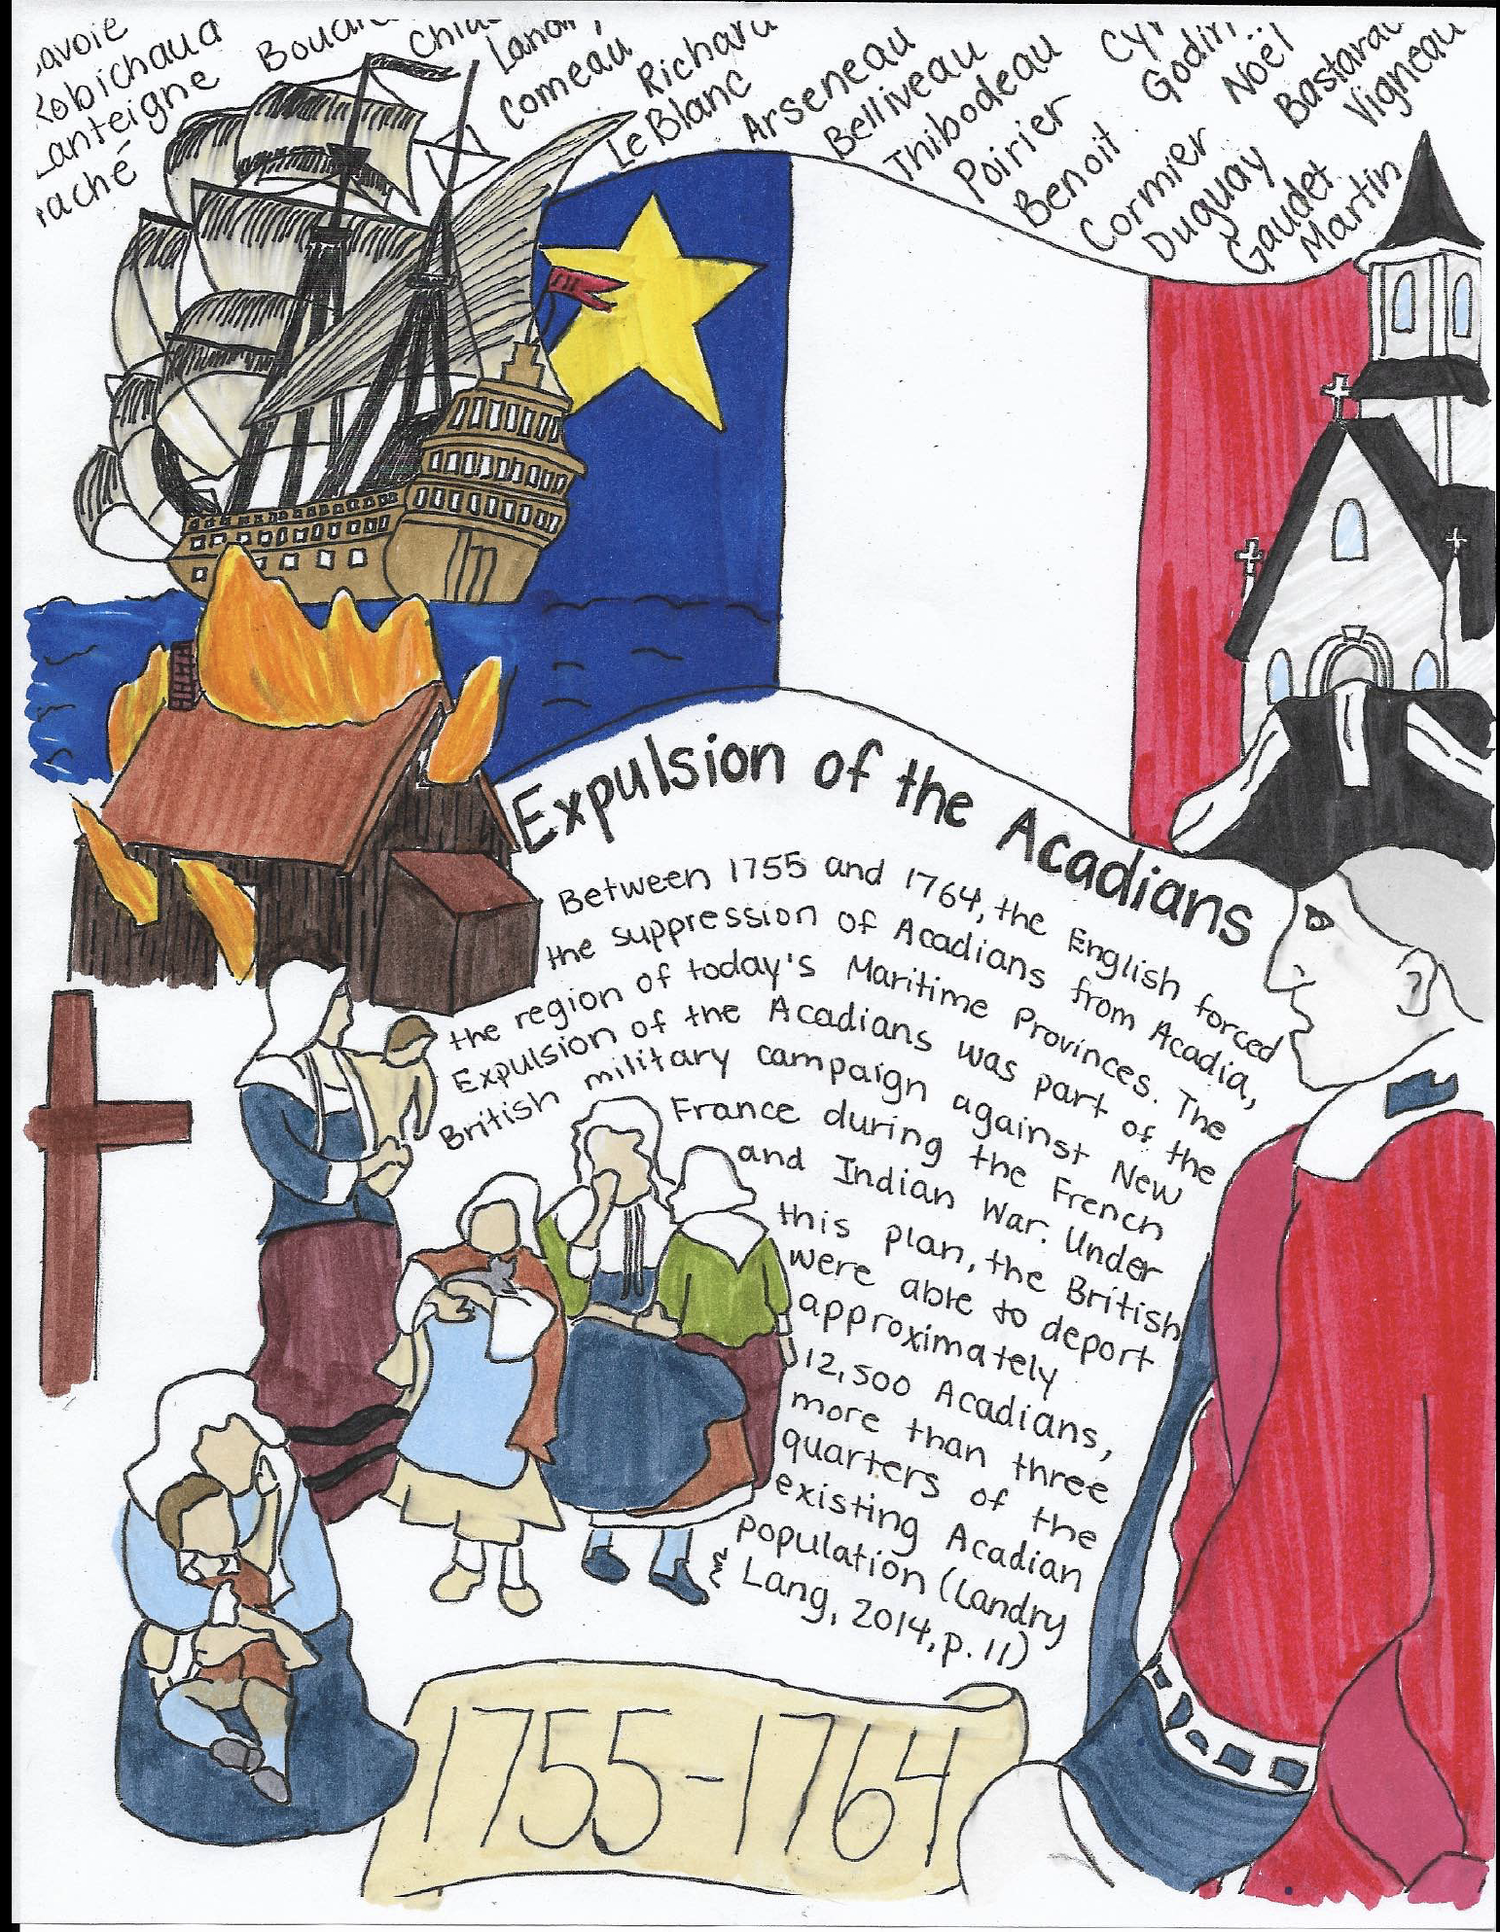 Robichaud
Lanteigne
Comeau
Richard
LeBlanc
Arseneau
Belliveau
Thibodeau
Poirier
Benoit
Cyr
Godin
Cormier
Duguay
Noël
Gaudet
Martin
Vigneau
Expulsion of the Acadians
Between 1755 and 1764, the English forced
the suppression of Acadians from Acadia,
the region of today's Maritime Provinces. The
Expulsion of the Acadians was part of the
British military campaign against New
France during the French
and Indian War. Under
this plan, the British
were able to deport
approximately
12,500 Acadians,
more than three
quarters of the
existing Acadian
population (Landry
& Lang, 2014, p. 11)
1755-1764